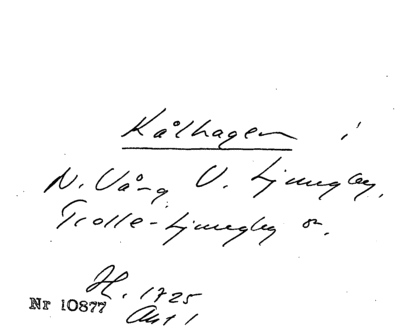 Kålhagen i
N. Vång, V. Ljungby,
Trolle-Ljungby sn.
H. 1725
Akt 1
Nr 10877